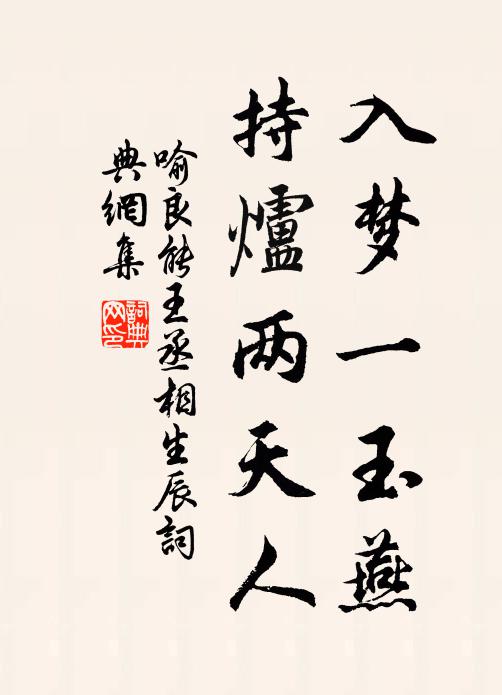 入梦一玉燕
持爐两天人
喻良能王丞相生辰詞
典網集
詞典網印